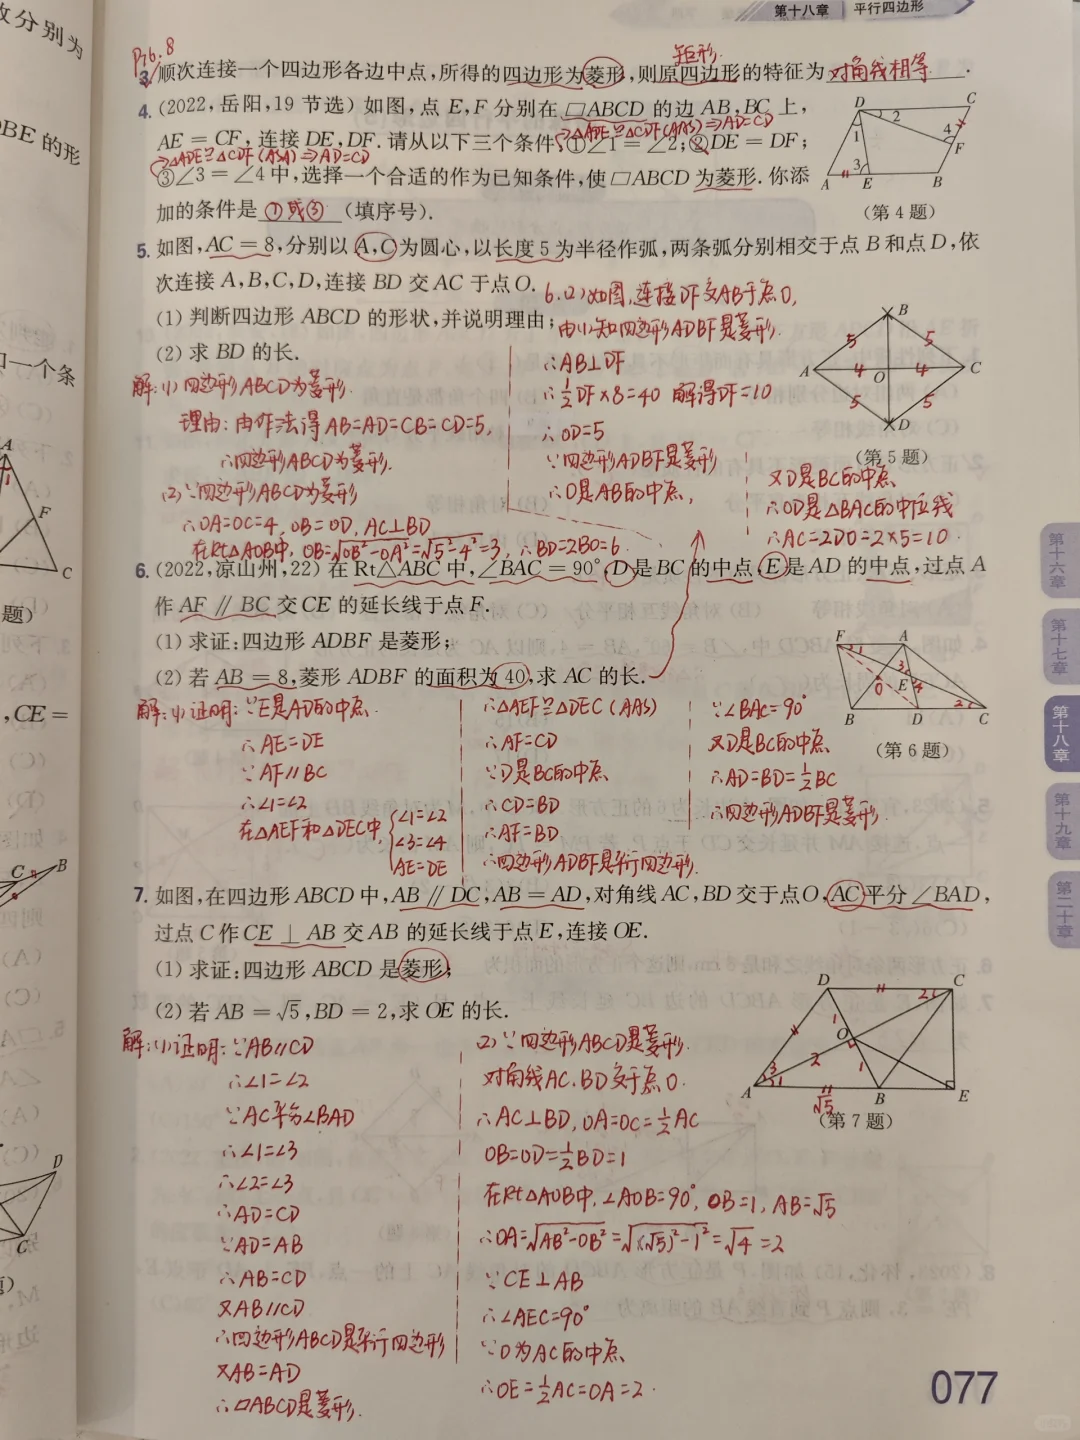 第十八章 平行四边形
P76.8
矩形.
3. 顺次连接一个四边形各边中点,所得的四边形为菱形,则原四边形的特征为 对角线相等 .
4. (2022,岳阳,19节选) 如图,点 E,F 分别在 □ABCD 的边 AB,BC 上,
AE = CF, 连接 DE,DF. 请从以下三个条件:①∠1 = ∠2;②DE = DF;
→△ADE≅△CDF(AAS)⇒AD=CD
→△ADE≅△CDF(ASA)⇒AD=CD
③∠3 = ∠4 中,选择一个合适的作为已知条件,使 □ABCD 为菱形. 你添
加的条件是 ①或③ (填序号).
D C 1 2 4 F 3 A E B
(第 4 题)
5. 如图,AC = 8,分别以 A,C 为圆心,以长度 5 为半径作弧,两条弧分别相交于点 B 和点 D,依
次连接 A,B,C,D,连接 BD 交 AC 于点 O.
(1) 判断四边形 ABCD 的形状,并说明理由;
(2) 求 BD 的长.
解:(1)四边形ABCD为菱形.
理由:由作法得AB=AD=CB=CD=5,
∴四边形ABCD为菱形.
(2)∵四边形ABCD为菱形
∴OA=OC=4, OB=OD, AC⊥BD
在Rt△AOB中, OB=√OB²-OA²=√5²-4²=3, ∴BD=2BO=6.
6.(2)如图,连接DF交AB于点O,
由(1)知四边形ADBF是菱形.
∴AB⊥DF
∴½DF×8=40 解得DF=10
∴OD=5
∵四边形ADBF是菱形
∴O是AB的中点,
又D是BC的中点
∴OD是△BAC的中位线
∴AC=2DO=2×5=10.
B 5 5 A 4 4 C O 5 5 D
(第 5 题)
6. (2022,凉山州,22) 在 Rt△ABC 中,∠BAC = 90°,D 是 BC 的中点,E 是 AD 的中点,过点 A
作 AF // BC 交 CE 的延长线于点 F.
(1) 求证:四边形 ADBF 是菱形;
(2) 若 AB = 8,菱形 ADBF 的面积为 40,求 AC 的长.
解:(1)证明:∵E是AD的中点.
∴AE=DE
∵AF//BC
∴∠1=∠2
在△AEF和△DEC中,
∠1=∠2
∠3=∠4
AE=DE
∴△AEF≅△DEC(AAS)
∴AF=CD
∵D是BC的中点
∴CD=BD
∴AF=BD
∴四边形ADBF是平行四边形.
∵∠BAC=90°
又D是BC的中点
∴AD=BD=½BC
∴四边形ADBF是菱形.
F A 1 3 O E 4 2 B D C
(第 6 题)
7. 如图,在四边形 ABCD 中,AB // DC,AB = AD,对角线 AC,BD 交于点O,AC平分∠BAD,
过点 C 作 CE ⊥ AB 交 AB 的延长线于点 E,连接 OE.
(1) 求证:四边形 ABCD 是菱形;
(2) 若 AB = √5,BD = 2,求 OE 的长.
解:(1)证明:∵AB//CD
∴∠1=∠2
∵AC平分∠BAD
∴∠1=∠3
∴∠2=∠3
∴AD=CD
∵AD=AB
∴AB=CD
又AB//CD
∴四边形ABCD是平行四边形
又AB=AD
∴□ABCD是菱形.
(2)∵四边形ABCD是菱形.
对角线AC.BD交于点O.
∴AC⊥BD, OA=OC=½AC
OB=OD=½BD=1
在Rt△AOB中,∠AOB=90°, OB=1, AB=√5
∴OA=√AB²-OB²=√(√5)²-1²=√4=2
∵CE⊥AB
∴∠AEC=90°
∵O为AC的中点
∴OE=½AC=OA=2.
D C 2 1 O 2 3 1 1 A B E √5
(第 7 题)
第十六章
第十七章
第十八章
第十九章
第二十章
077